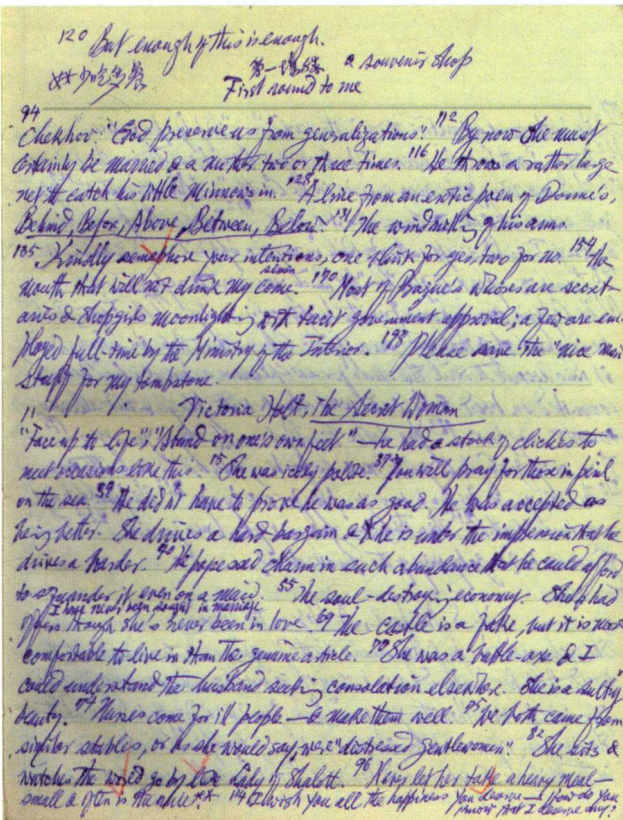 120 But enough of this is enough.
a souvenir shop
First round to me
94
Chekhov: "God preserve us from generalizations" 112 By now she must
certainly be married & a mother two or three times. 116 He throws a rather large
net to catch his little minnows in. 128 A line from an erotic poem of Donne's,
Behind, Befor, Above, Between, Below. 131 The windmilling of his arms
135 Kindly semaphore your intentions, one blink for yes, two for no. 154 The
mouth that will not drink my come. semen 190 Most of Prague's whores are secret-
aries & shopgirls moonlighting with tacit government approval; a few are em-
ployed full-time by the Ministry of the Interior. 198 Please save the "nice man"
stuff for my tombstone.
11 Victoria Holt, The Secret Woman
"Face up to life", "Stand on one's own feet" — he had a stock of clichés to
meet occasions like this. 15 She was icily polite. 37 You will pray for those in peril
on the sea. 39 He didn't have to prove he was as good. He was accepted as
being better. She drives a hard bargain & he is under the impression that he
drives a harder. 40 He possessed charm in such abundance that he could afford
to squander it even on a maid. 55 The soul-destroying economy. She's had
I have never been sought in marriage
offers though she's never been in love. 69 The castle is a fake, but it is more
comfortable to live in than the genuine article. 70 She was a battle-axe & I
could understand the husband seeking consolation elsewhere. She is a sultry
beauty. 74 Nurses come for ill people — to make them well. 75 We both came from
similar stables, or as she would say, were "distressed gentlewomen". 82 She sits &
watches the world go by like Lady of Shalott. 96 Never let her take a heavy meal —
small & often is the rule ** 142 wish you all the happiness you deserve — How do you
know that I deserve any?